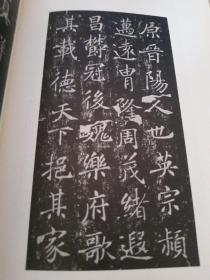 原晉陽人也英宗頻
邁遠胄隆周茂緒遐
昌欝冠後魏樂府歌
其載德天下挹其家